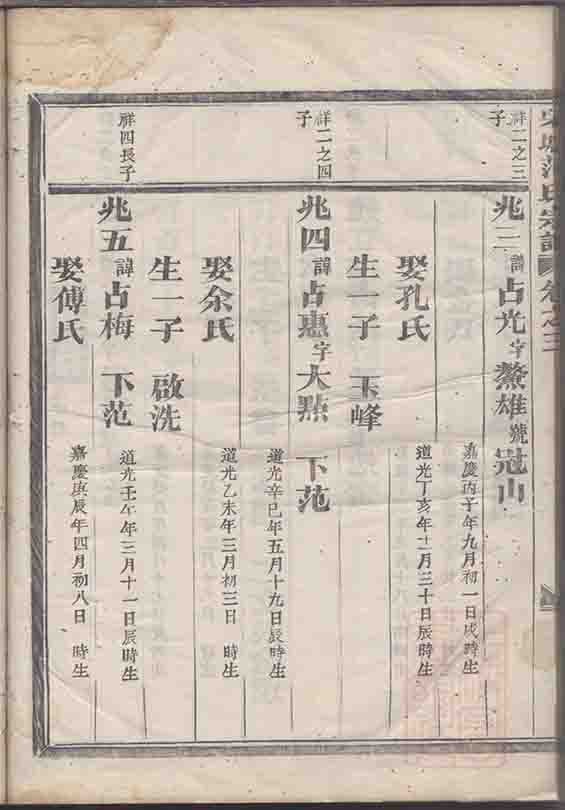 范氏宗譜 卷之三
祥二之三子
兆三 諱占光字鰲雄號冠山
嘉慶丙子年九月初一日戌時生
娶孔氏
道光丁亥年十一月三十日辰時生
生一子 玉峰
祥二之四子
兆四 諱占惠字大㸃 下范
道光辛巳年五月十九日辰時生
娶余氏
道光乙未年三月初三日 時生
生一子 啟洗
祥四長子
兆五 諱占梅 下范
道光壬午年三月十一日辰時生
娶傅氏
嘉慶庚辰年四月初八日 時生